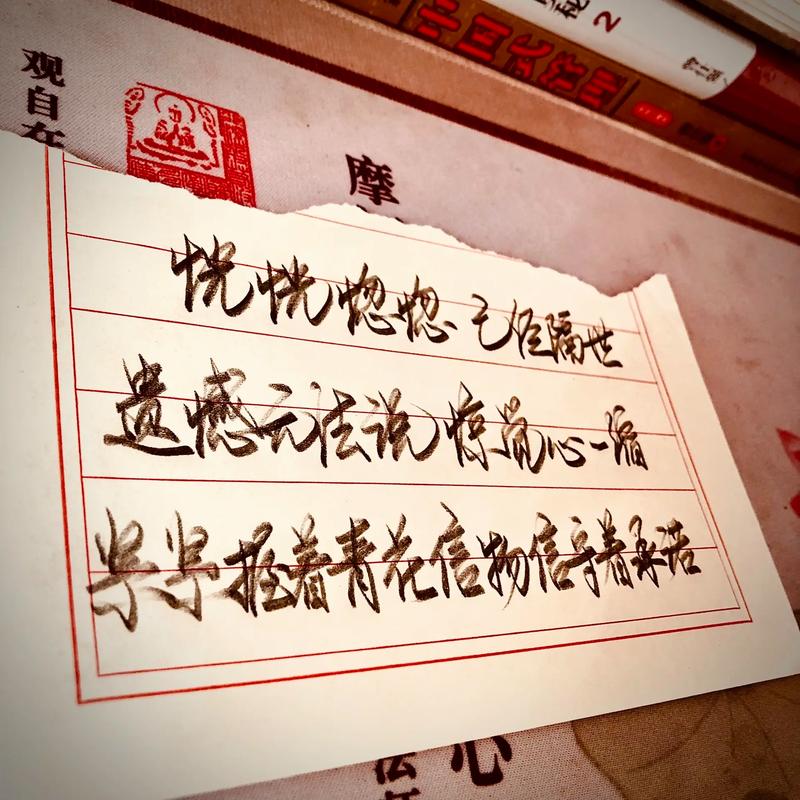 中国式管理
2
观自在
摩
恍恍惚惚 已经隔世
遗憾无法说 惊觉心一缩
紧紧握着青花信物信守着承诺
法
心